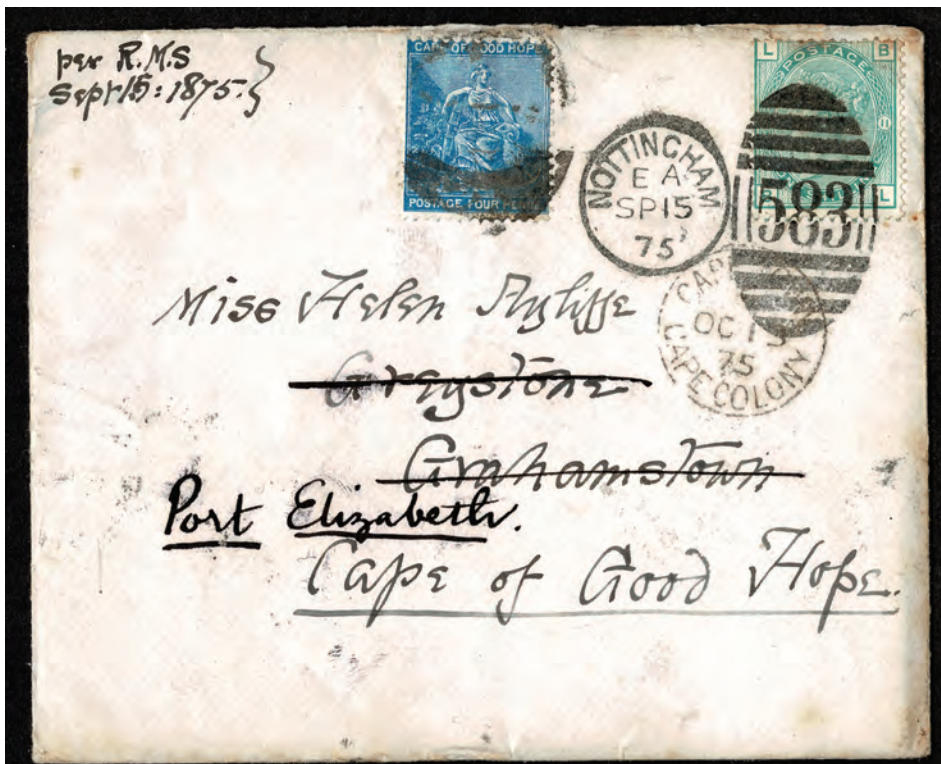 per R.M.S
Sept 15: 1875.
CAPE OF GOOD HOPE
POSTAGE FOUR PENCE
L B
POSTAGE
11
L
NOTTINGHAM
E A
SP 15
75
583
OC 1
75
CAPE COLONY
Miss Helen Ayliffe
Greystone
Grahamstown
Port Elizabeth.
Cape of Good Hope.